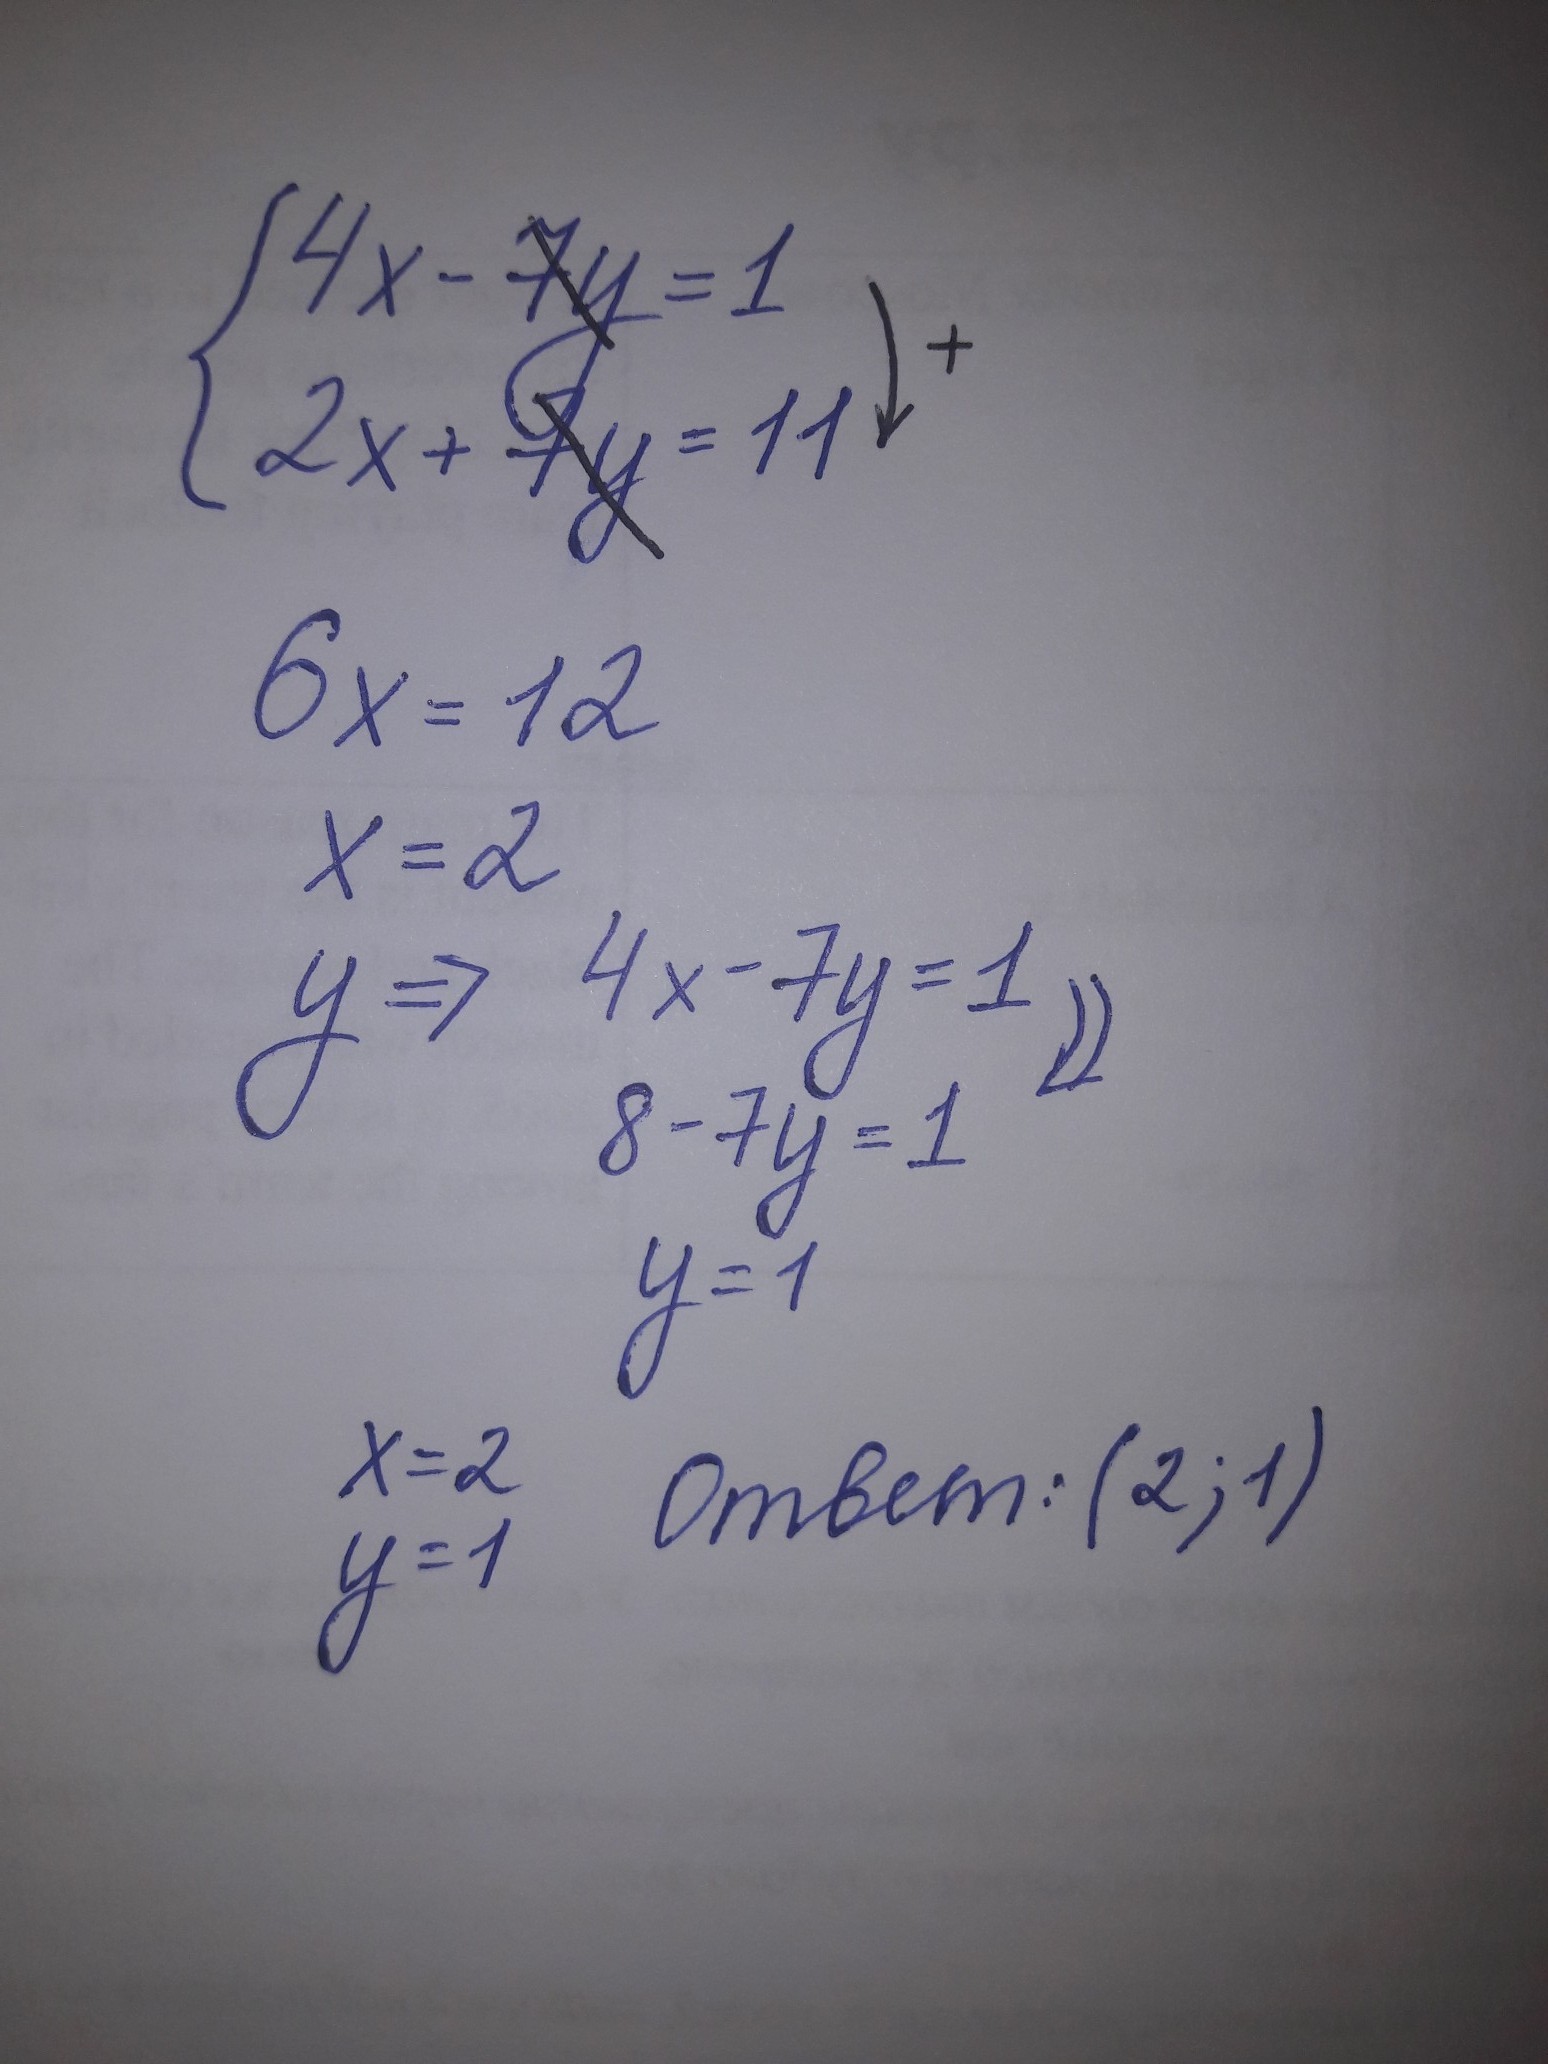 4x - 7y = 1
+
2x + 7y = 11
6x = 12
x = 2
y ⇒ 4x - 7y = 1
8 - 7y = 1
y = 1
x = 2
y = 1
Ответ: (2; 1)